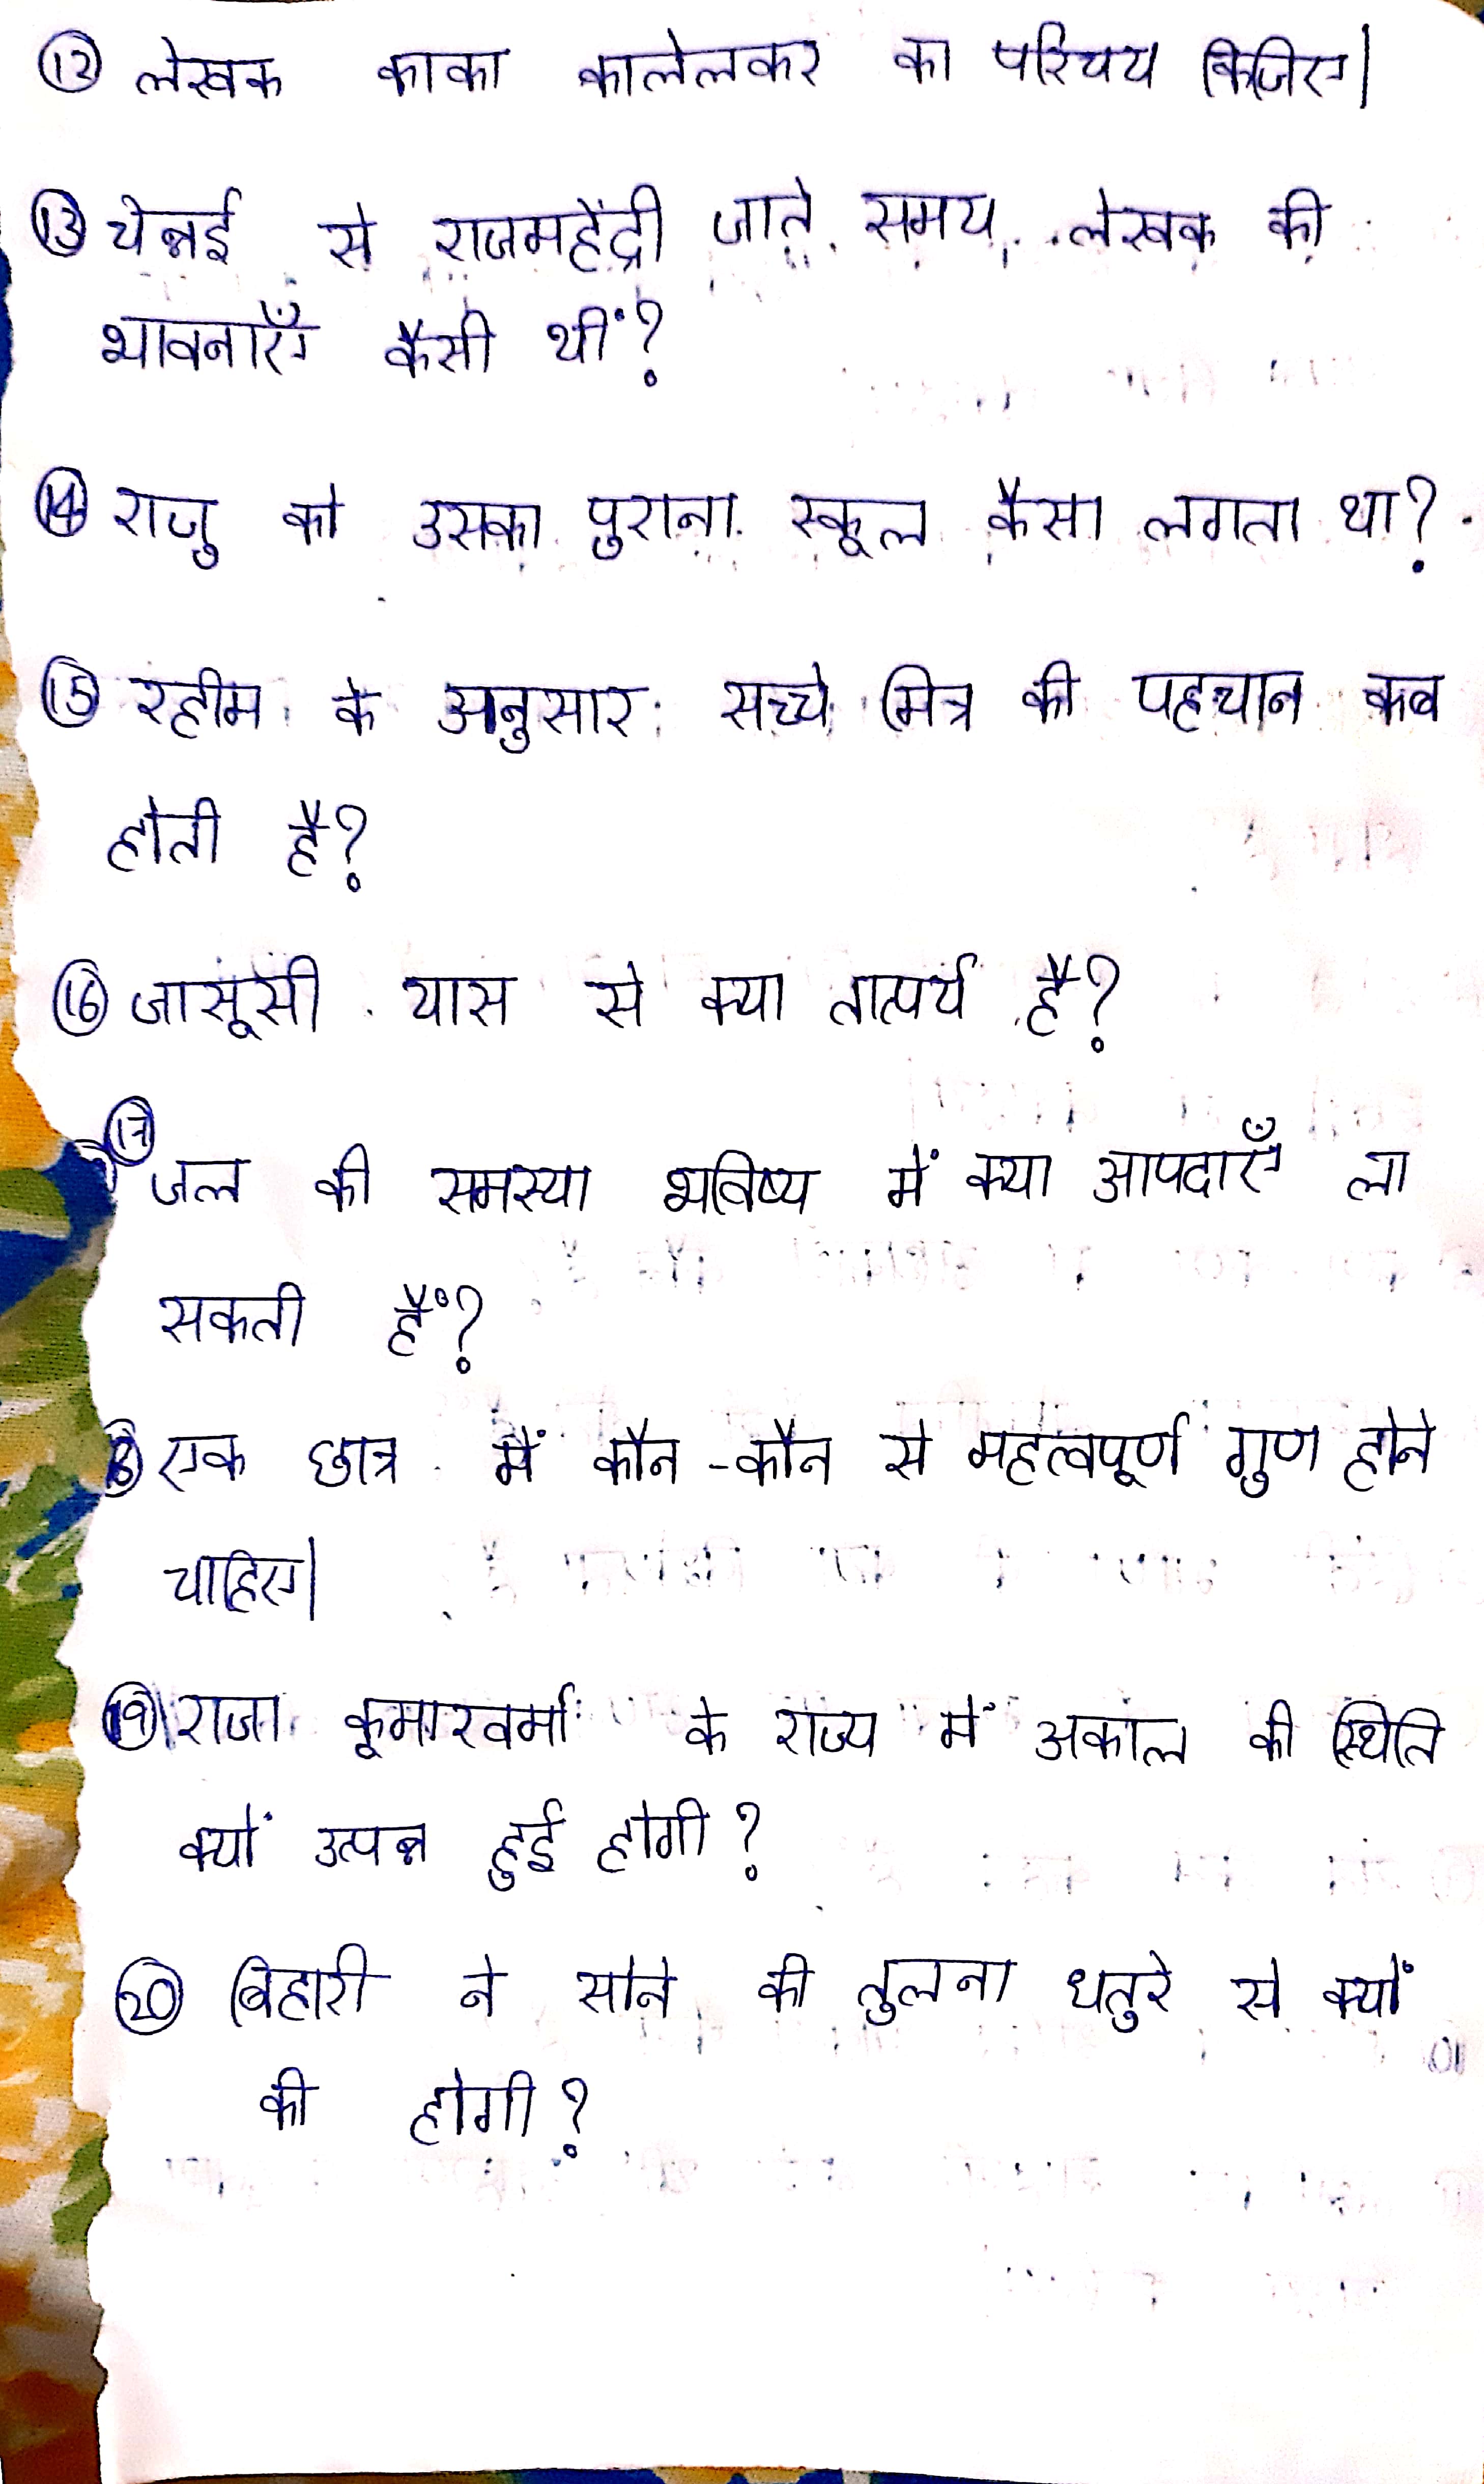 12 लेखक काका कालेलकर का परिचय किजिए।
13 चेन्नई से राजमहेंद्री जाते समय लेखक की
भावनाएँ कैसी थीं?
14 राजु को उसका पुराना स्कूल कैसा लगता था?
15 रहीम के अनुसार सच्चे मित्र की पहचान कब
होती है?
16 जासूसी यास से क्या तात्पर्य है?
17
जल की समस्या भविष्य में क्या आपदाएँ ला
सकती हैं?
18 एक छात्र मैं कौन-कौन से महत्वपूर्ण गुण होने
चाहिए।
19 राजा कूमारवर्मा के राज्य में अकाल की स्थिति
क्यों उत्पन्न हुई होगी?
20 बिहारी ने सोने की तुलना धतुरे से क्यों
की होगी?